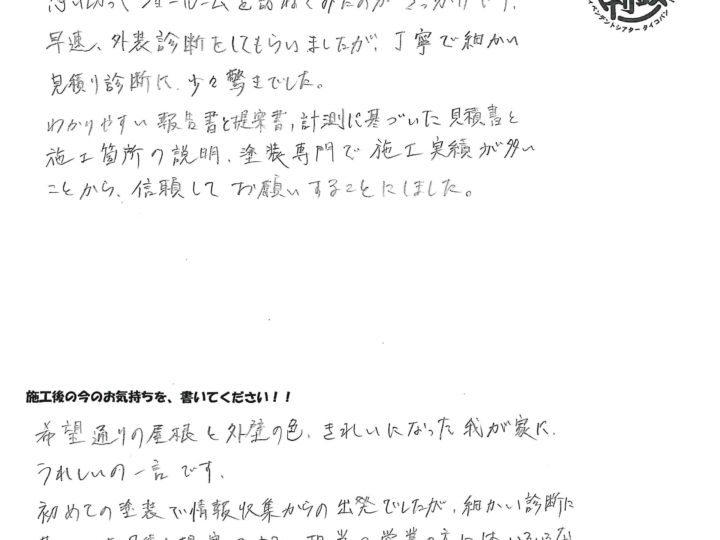 ショールームを訪ねてみたのがきっかけです。
早速、外装診断をしてもらいましたが、丁寧で細かい
見積り診断に、少々驚きでした。
わかりやすい報告書と提案書、計測に基づいた見積書と
施工箇所の説明、塗装専門で施工実績が多い
ことから、信頼してお願いすることにしました。
施工後の今のお気持ちを、書いてください！！
希望通りの屋根と外壁の色、きれいになった我が家に、
うれしいの一言です。
初めての塗装で情報収集からの出発でしたが、細かい診断に